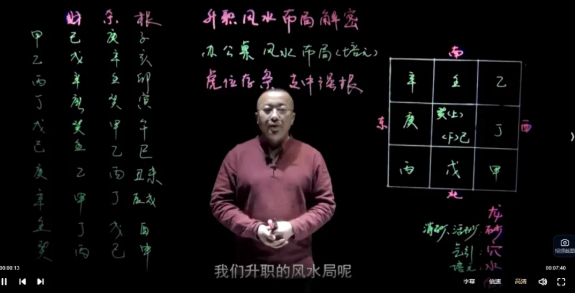 财 杀 根
甲 己 庚 子
乙 戊 辛 亥
丙 辛 壬 卯
丁 庚 癸 寅
戊 癸 甲 午
己 壬 乙 巳
庚 乙 丙 丑未
辛 甲 丁 辰戌
壬 丁 戊 酉
癸 丙 己 申
升职风水布局解密
办公桌风水布局(培元)
虎位存杀
南
辛 壬 乙
东 庚 癸(上) 丁 西
(下)己
丙 戊 甲
北
龙
消砂、 砂
穴
培元 水
我们升职的风水局呢
00:00:13
00:07:40
字幕 倍速 高清